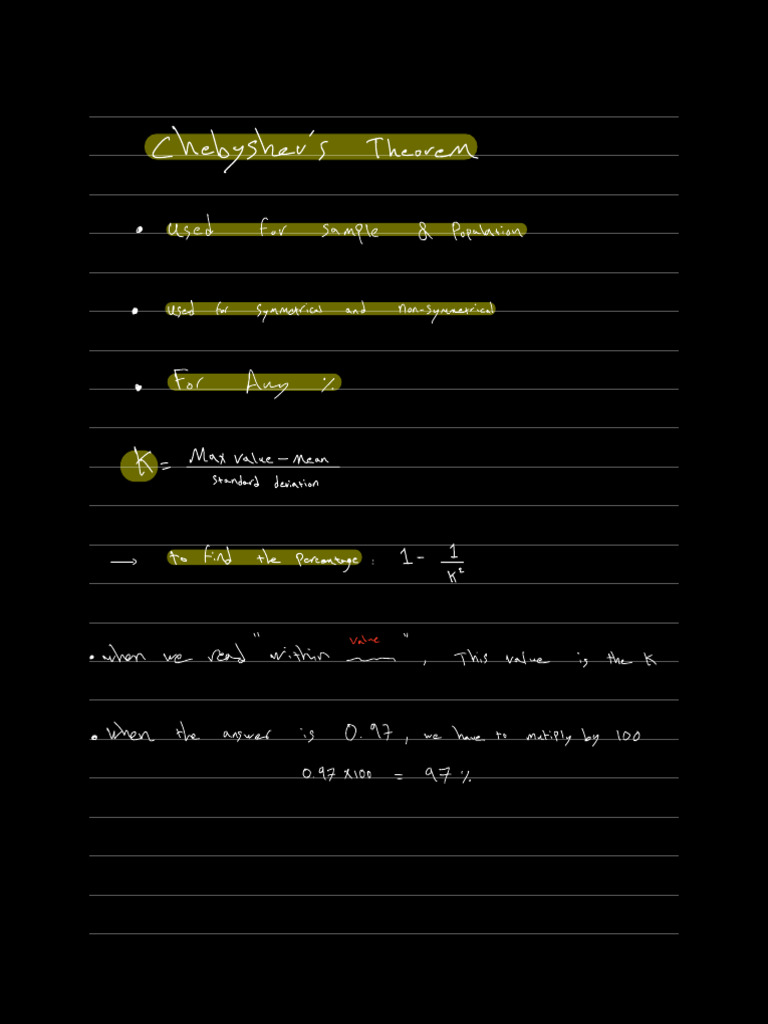 Chebyshev's Theorem
• Used for sample & Population
• Used for Symmetrical and Non-Symmetrical
• For Any %
K = Max value - Mean / standard deviation
→ to find the percentage : 1 - 1/K²
• when we read "within value", This value is the K
• When the answer is 0.97, we have to mutiply by 100
0.97 x100 = 97 %